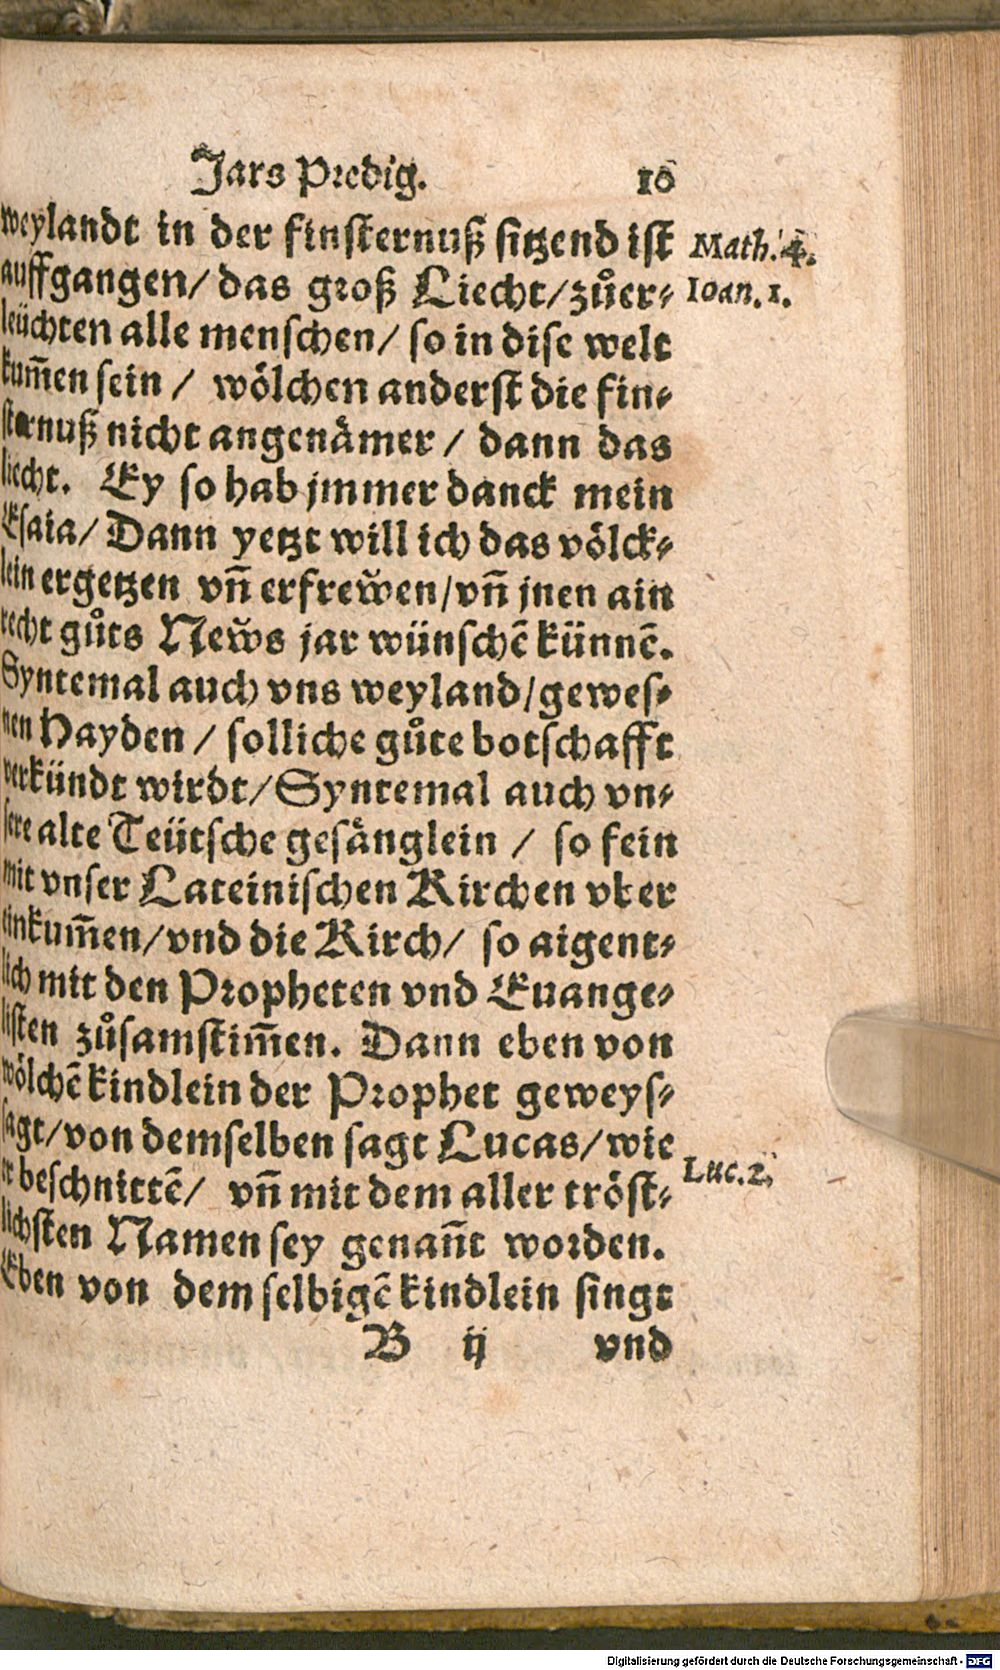 Jars Predig. 10
weylandt in der finsternuß sitzend ist
auffgangen/ das groß Liecht/zůer⸗
leüchten alle menschen/ so in dise welt
kum̃en sein / wölchen anderst die fin⸗
sternuß nicht angenämer / dann das
liecht. Ey so hab jmmer danck mein
Esaia/ Dann yetzt will ich das völck⸗
lein ergetzen vñ erfrew̌en/vñ jnen ain
recht gůts New̌s jar wünschẽ künnẽ.
Syntemal auch vns weyland/gewes⸗
nen Hayden / solliche gůte botschafft
verkündt wirdt/Syntemal auch vn⸗
sere alte Teütsche gesänglein / so fein
mit vnser Lateinischen Kirchen vber
einkum̃en/vnd die Kirch/ so aigent⸗
lich mit den Propheten vnd Euange⸗
listen zůsamstim̃en. Dann eben von
wölchẽ kindlein der Prophet geweys⸗
sagt/von demselben sagt Lucas/wie
er beschnittẽ/ vñ mit dem aller tröst⸗
lichsten Namen sey genañt worden.
Eben von dem selbigẽ kindlein singt
B ij vnd
Math. 4.
Ioan. 1.
Luc. 2.
Digitalisierung gefördert durch die Deutsche Forschungsgemeinschaft - DFG